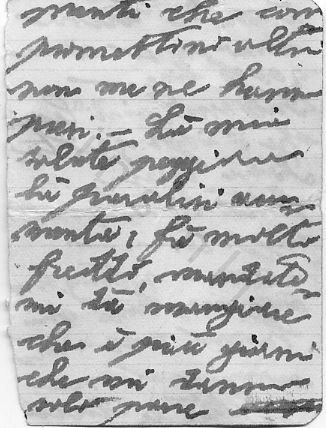 menti che com
promettino altri
non me ne hann
presi. - La mia
salute peggiora
la paralisi au
menta, fà molto
freddo, mandate
mi da mangiare
che è più giorni
che mi danno
solo pane